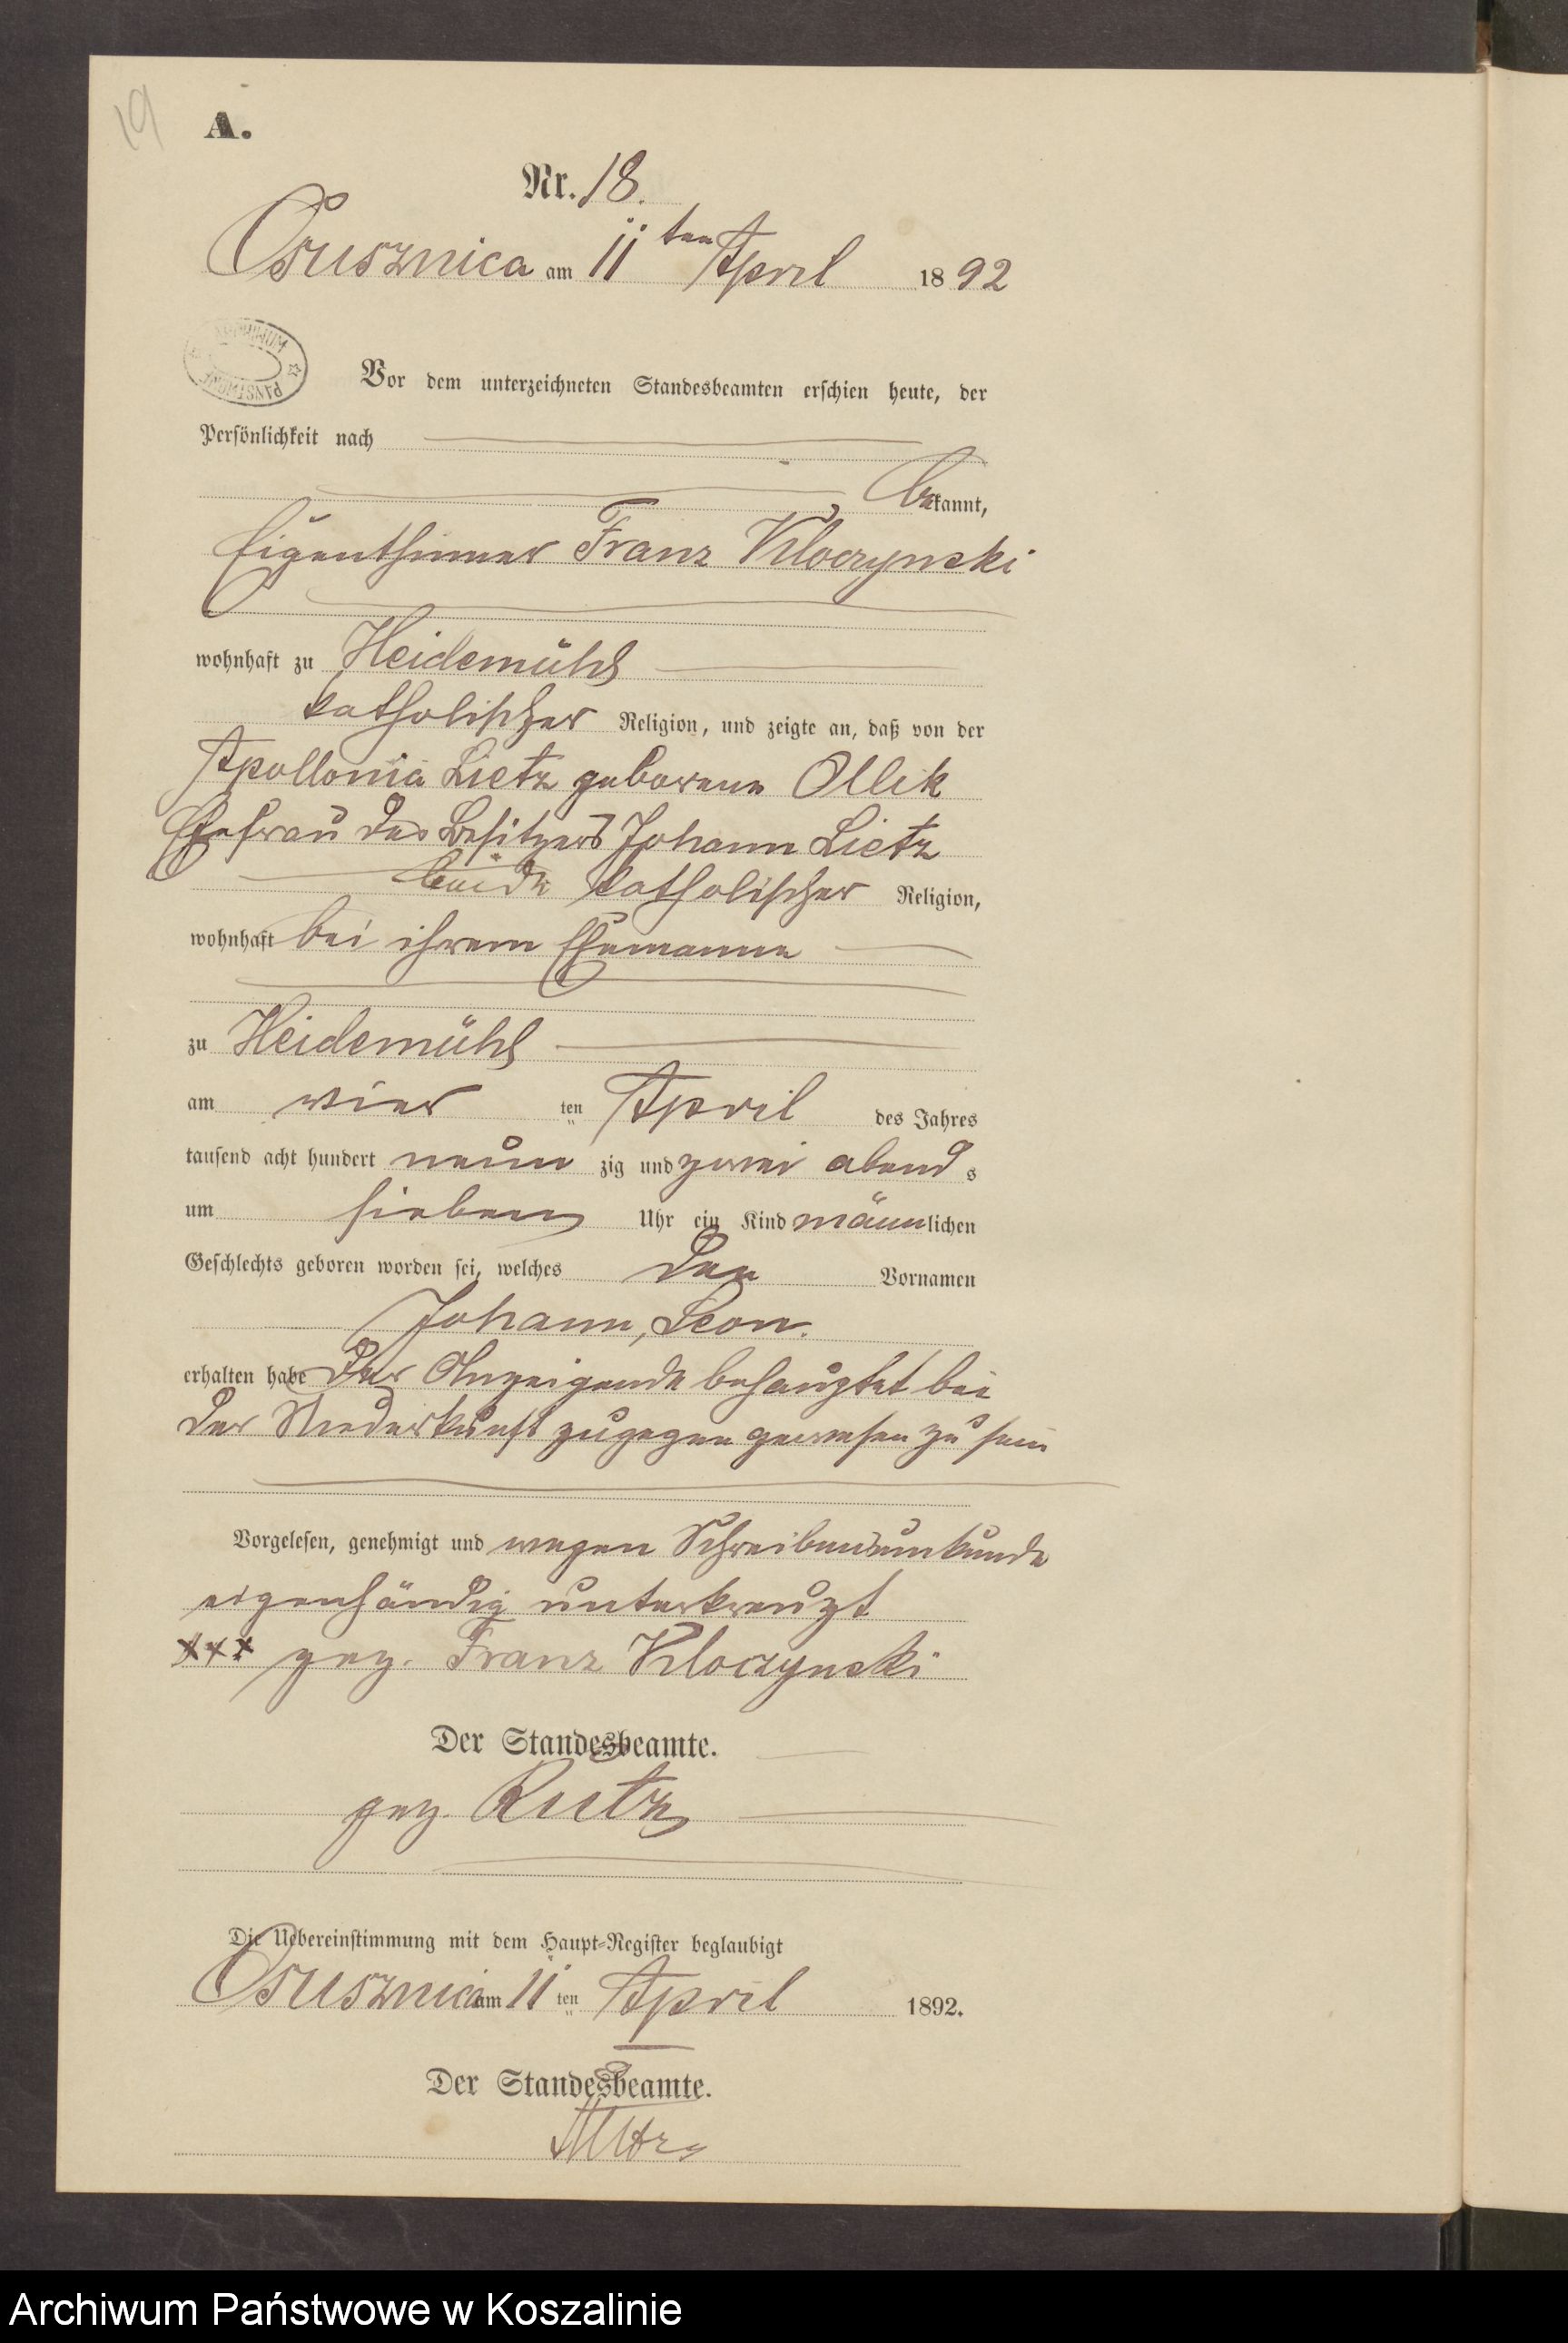 19
A.
Nr. 18.
Osusznica am 11ten April 1892
ARCHIWUM PAŃSTWOWE
Vor dem unterzeichneten Standesbeamten erschien heute, der
Persönlichkeit nach
bekannt,
Eigenthümer Franz Kloczynski
wohnhaft zu Heidemühl
katholischer Religion, und zeigte an, daß von der
Apollonia Lietz geborene Ollik
Ehefrau des Besitzers Johann Lietz
beide katholischer Religion,
wohnhaft bei ihrem Ehemanne
zu Heidemühl
am vier ten April des Jahres
tausend acht hundert neun zig und zwei abends
um sieben Uhr ein Kind männlichen
Geschlechts geboren worden sei, welches den Vornamen
Johann, Leon.
erhalten habe Der Anzeigende behauptet bei
der Niederkunft zugegen gewesen zu sein
Vorgelesen, genehmigt und wegen Schreibensunkunde
eigenhändig unterkreuzt
xxx gez. Franz Kloczynski
Der Standesbeamte.
gez. Rutz
Die Uebereinstimmung mit dem Haupt-Register beglaubigt
Osusznica am 11 ten April 1892.
Der Standesbeamte.
Archiwum Państwowe w Koszalinie